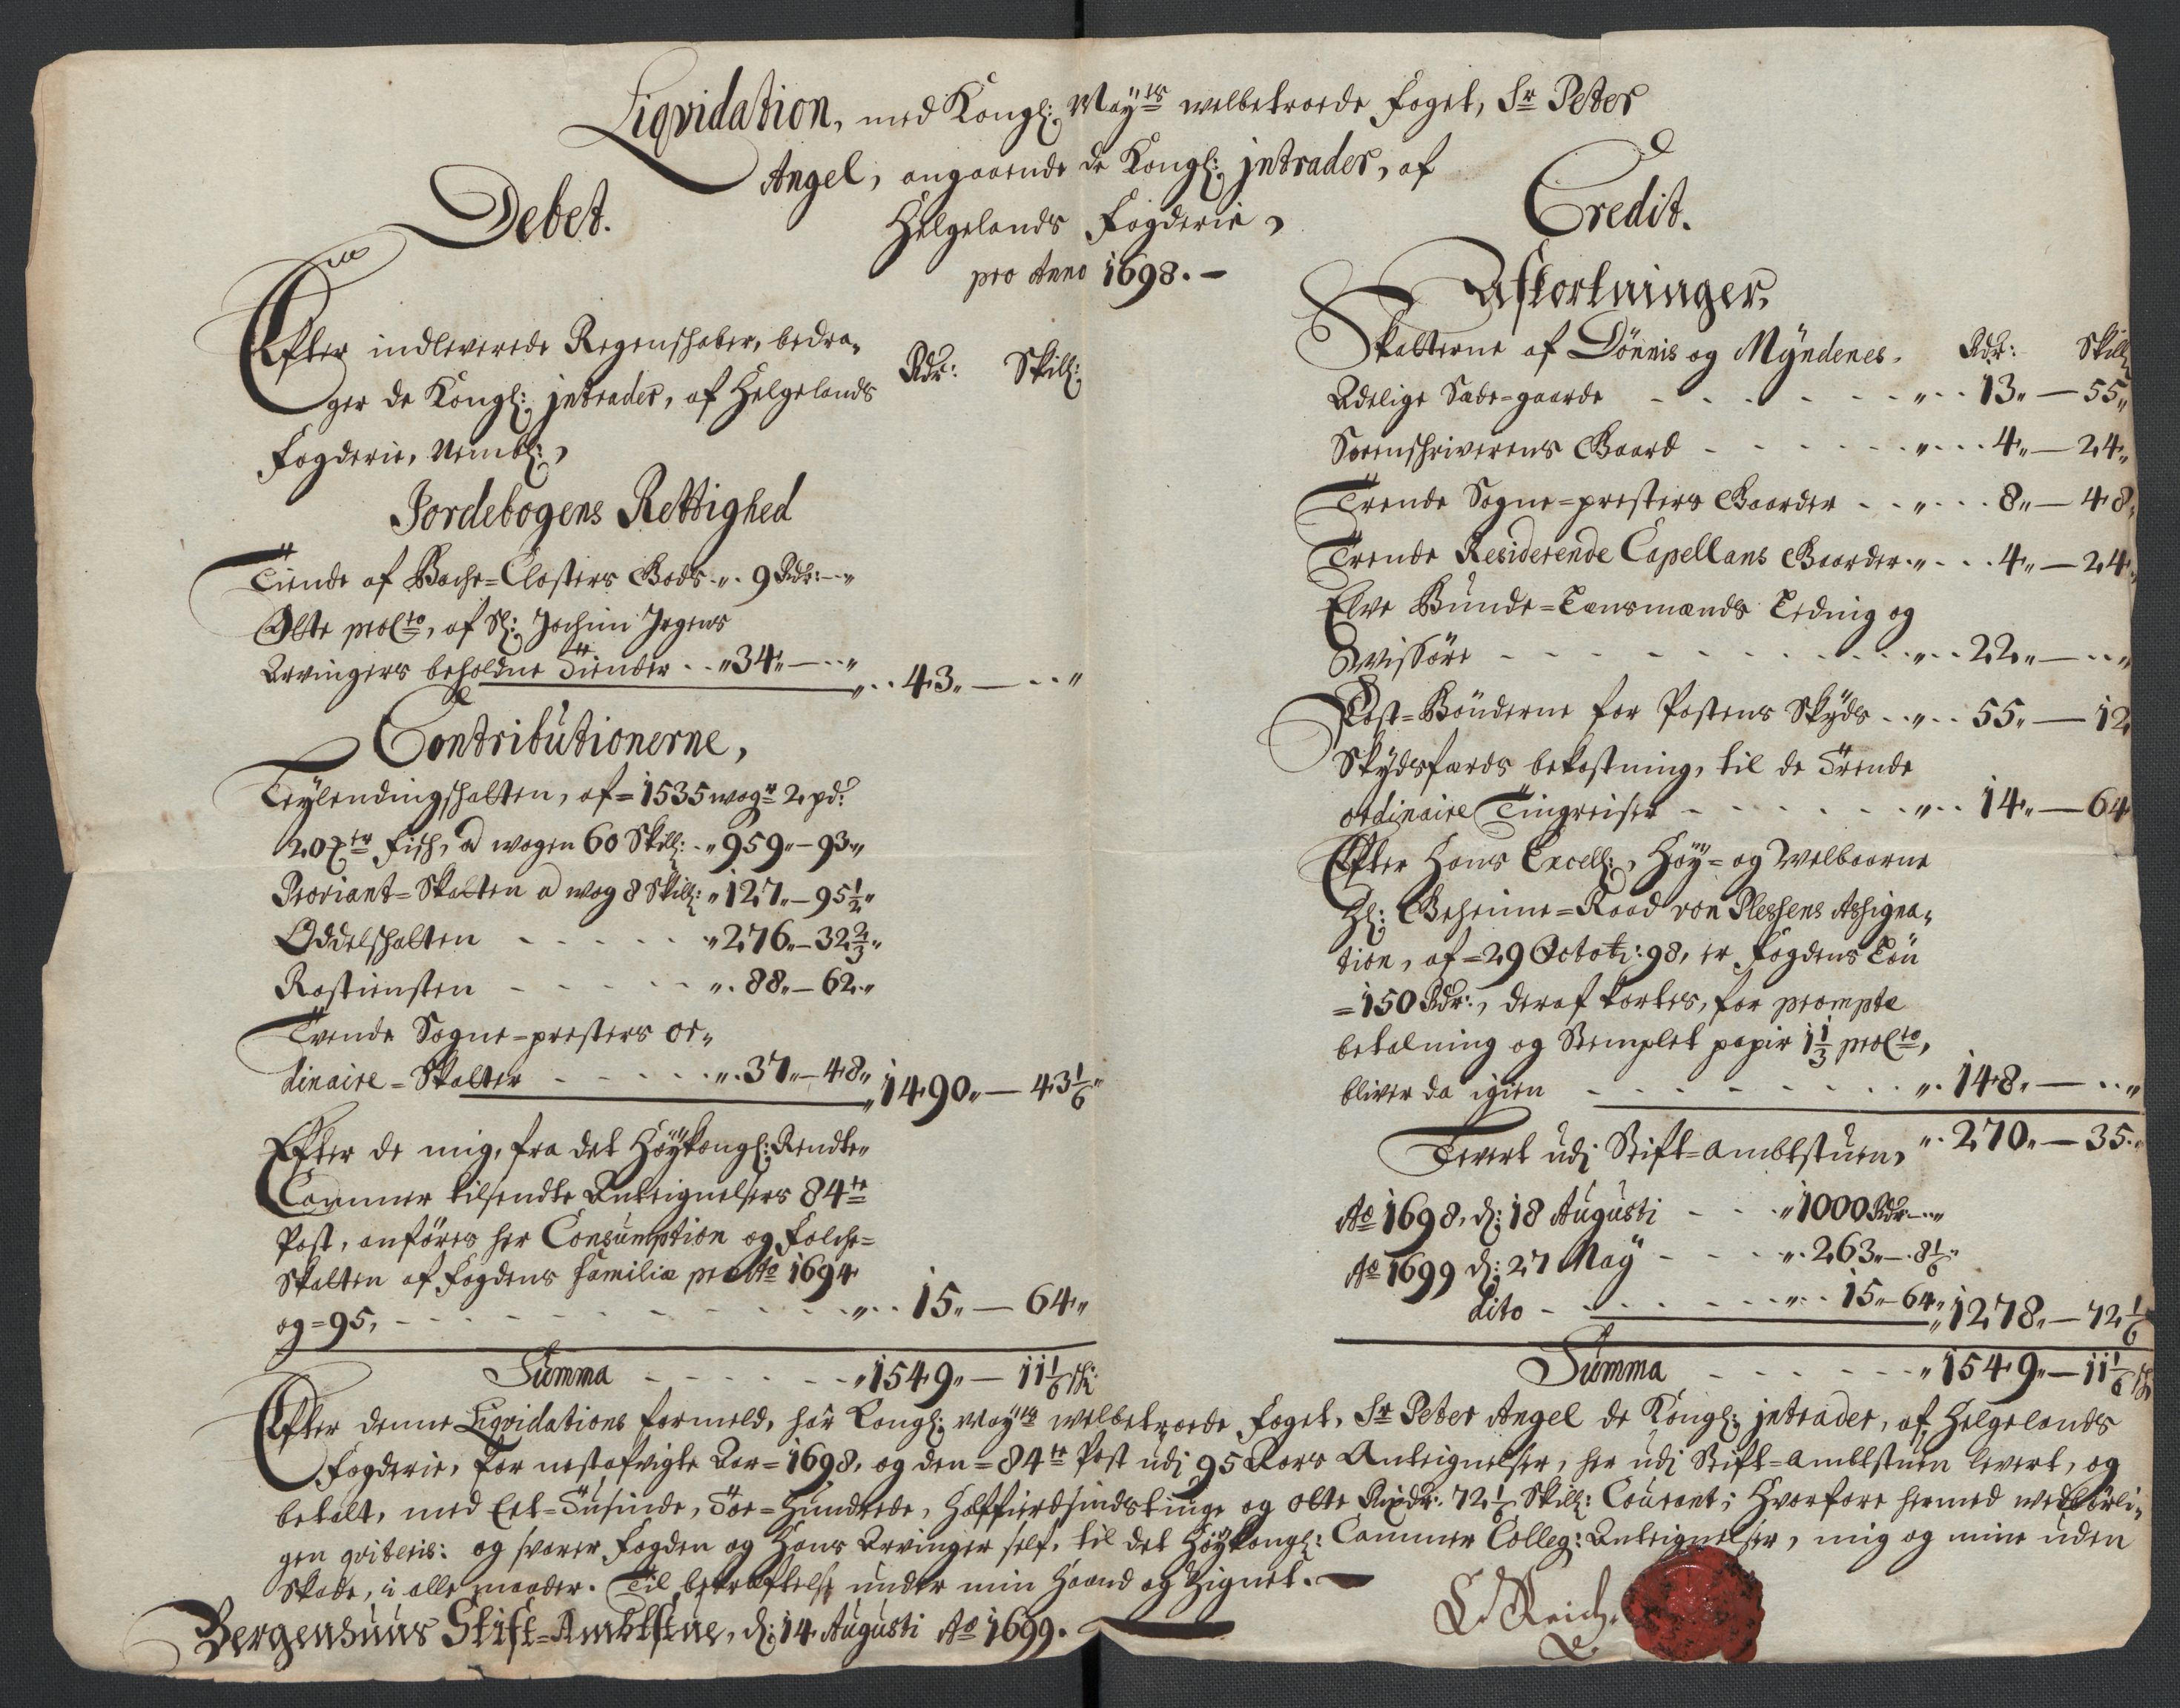 Liqvidation, med Kongl: May:ts welbetroede foget, Sr Peter
Angel, angaaende de Kongl: jntrader, af
Helgelands Fogderie,
pro Anno 1698.
Debet.
Efter indleverede Regenschaber, bedra-
ger de Kongl: jntrader, af Helgelands
Fogderie, Nembl:,
Rdr: Skill:
Jordebogens Rettighed
Tiende af Bache-Closters Gods „ 9 Rdr: „
Otte prol:to, af Sl: Jochim Jrgens
Arvingers beholdne Tiender „ 34 „ — „
„ 43 „ — „
Contributionerne,
Leylendingschatten, af = 1535 wog:r 2 pd:
20 Fisch, a wogen 60 Skill: „ 959 „ — 93 „
Proviant-Skatten a wog 8 Skill: „ 127 „ — 95½ „
Oddelschatten „ 276 „ — 32⅔ „
Rostiensten „ 88 „ — 62 „
Tvende Sogne-presters or-
dinaire-Skatter „ 37 „ — 48 „ 1490 „ — 43⅙ „
Efter de mig, fra det Höykongl: Rendte-
Cammer tilsendte Anteignelsers 84:te
Post, anföres her Consumption og Folche-
Skatten af Fogdens familie pro Ao 1694
og = 95, „ 15 „ — 64 „
Summa „ 1549 „ — 11⅙ sk:
Credit.
Afkortninger,
Skatterne af Dönnis og Myndenes. Rdr: Skill:
Adelige Sæde-gaarde „ 13 „ — 55 „
Sorenschriverens Gaard „ 4 „ — 24 „
Trende Sogne-presters Gaarder „ 8 „ — 48 „
Trende Residerende Capellans Gaarder „ 4 „ — 24 „
Elve Bunde-Lænsmænds Lednig og
Wissöre „ 22 „ — „
Post-Bönderne for Postens Skyds „ 55 „ — 12
Skydsfærds bekostning, til de Trende
ordinaire Tingreiser „ 14 „ — 64
Efter Hans Excell:, Höy- og Welbaarne
Hl: Geheime-Raad von Plessens Assigna-
tion, af = 29 Octobr: 98, er Fogdens Lön
= 150 Rdr:, deraf kortes, for prompte
betalning og Stemplet papir 1⅓ prol:to,
bliver da igien „ 148 „ — „
„ 270 „ — 35 „
Levert udj Stift-ambtstuen,
Ao 1698, d: 18 Augusti „ 1000 Rdr — „
Ao 1699 d: 27 May „ 263 „ — 8⅙ „
dito „ 15 „ — 64 „ 1278 „ — 72⅙
Summa „ 1549 „ — 11⅙ sk
Efter denne Liqvidations formeld, har Kongl: May:ts welbetroede foget, Sr Peter Angel de Kongl: jntrader, af Helgelands
Fogderie, for nestafvigte Aar = 1698, og den = 84:te Post udj 95 Aars Anteignelser, her udj Stift-ambtstuen levert, og
betalt, med Eet-Tusinde, Toe-Hundrede, Halffierdsindstiuge og Otte Rixdr: 72⅙ Skill: Courant; Hvorfore hermed wedbörli-
gen qviteris: og svarer Fogden og Hans Arvinger self, til det Höykongl: Cammer Colleg: Anteignelser, mig og mine uden
Skade, i alle maader. Til bekræftelse under min Haand og Zignet.
Bergenhuus Stift-Ambtstue, d: 14 Augusti Ao 1699.